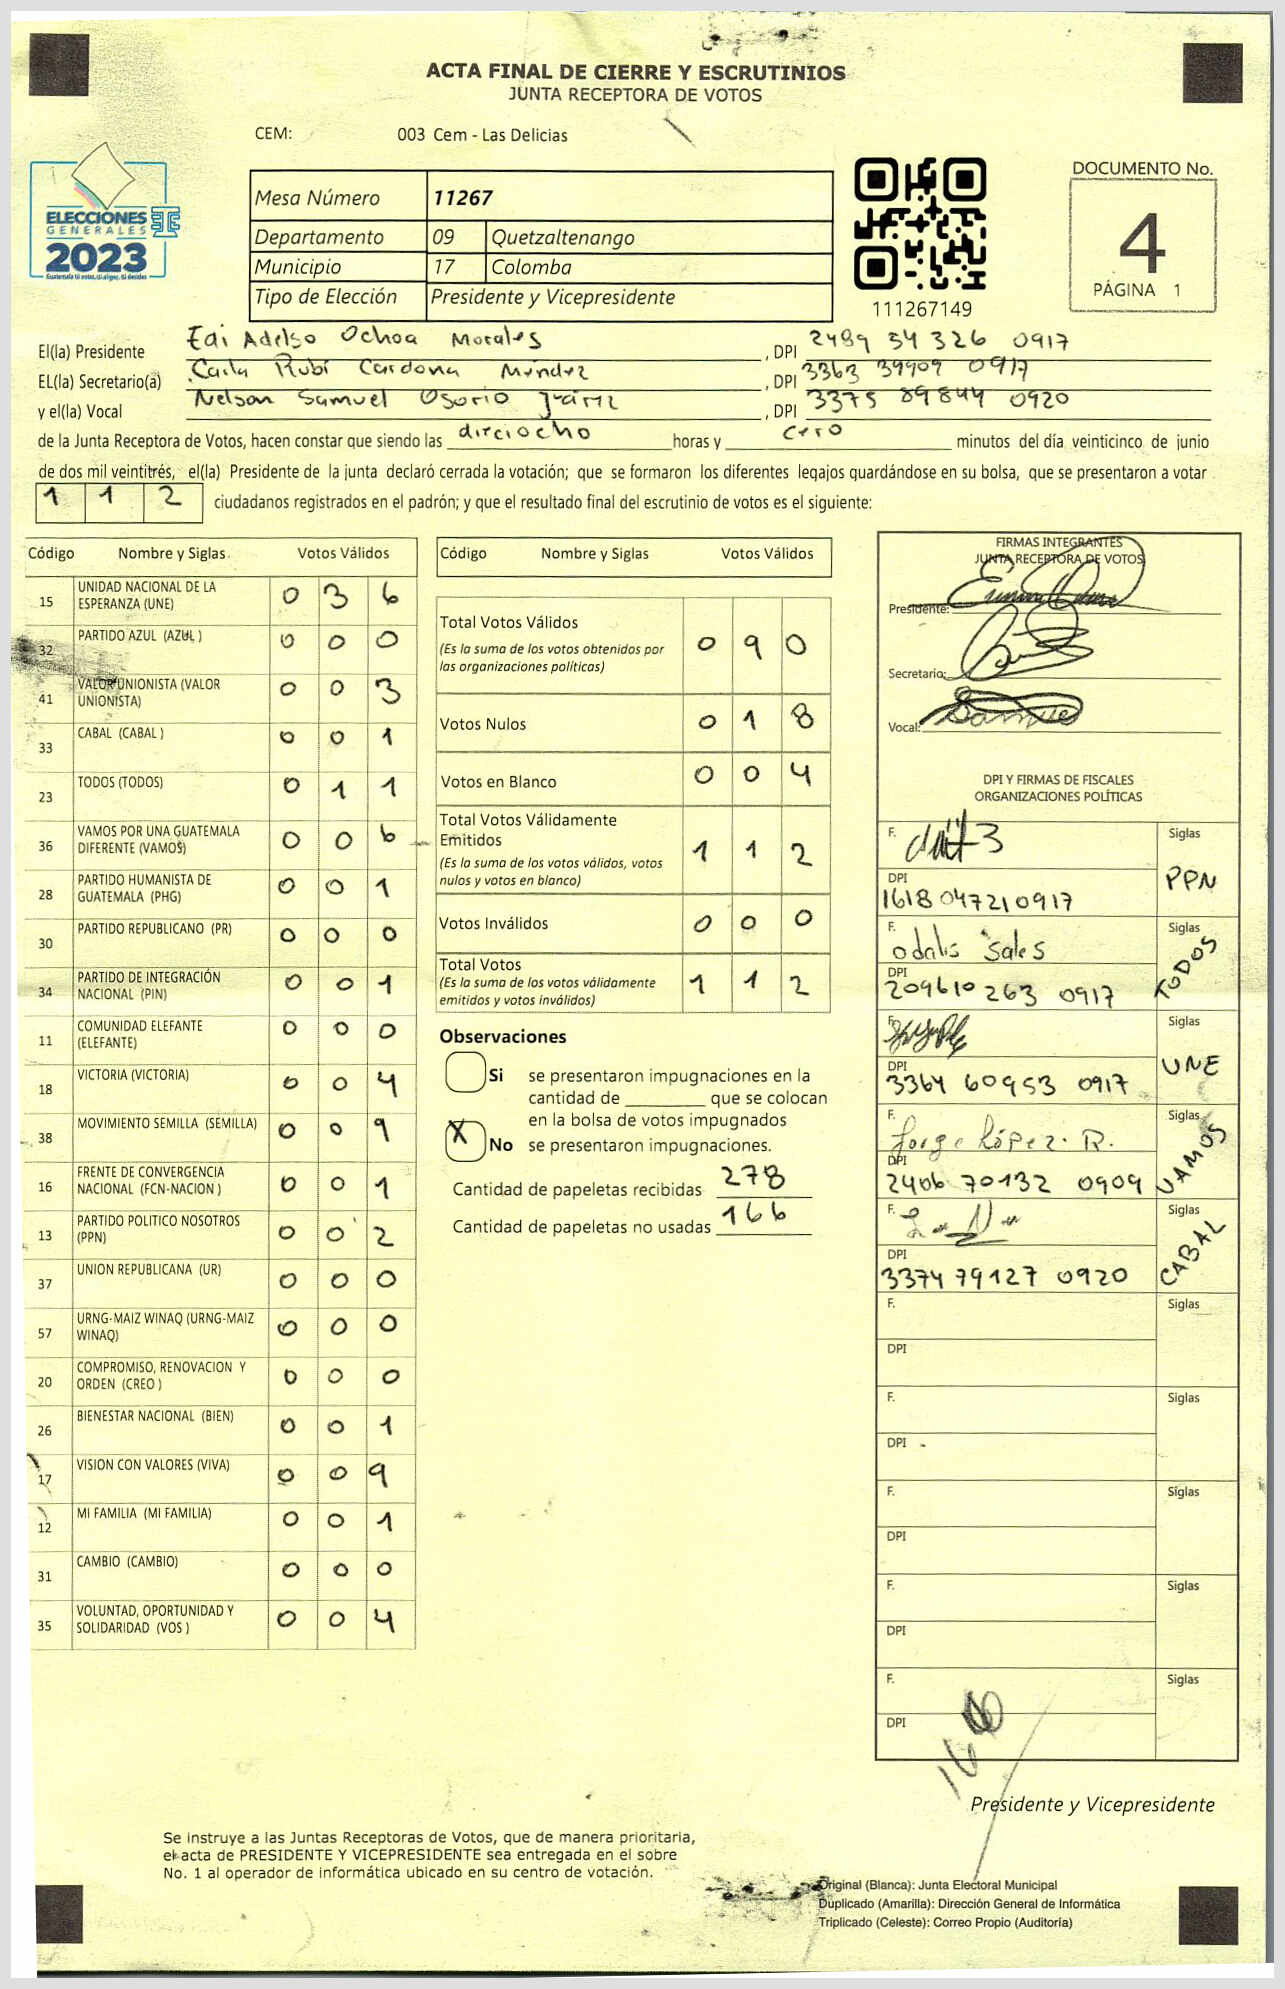 ACTA FINAL DE CIERRE Y ESCRUTINIOS
JUNTA RECEPTORA DE VOTOS
CEM: 003 Cem - Las Delicias
ELECCIONES
GENERALES
2023
Mesa Número 11267
Departamento 09 Quetzaltenango
Municipio 17 Colomba
Tipo de Elección Presidente y Vicepresidente
111267149
DOCUMENTO No.
4
PÁGINA 1
El(la) Presidente Edi Adelso Ochoa Morales, DPI 2489 54 326 0917
EL(la) Secretario(a) Carla Rubí Cardona Méndez, DPI 3363 39909 0917
y el(la) Vocal Nelson Samuel Osorio, DPI 3375 89844 0920
de la Junta Receptora de Votos, hacen constar que siendo las dieciocho horas y cero minutos del día veinticinco de junio
de dos mil veintitrés, el(la) Presidente de la junta declaró cerrada la votación; que se formaron los diferentes legajos quardándose en su bolsa, que se presentaron a votar
112 ciudadanos registrados en el padrón; y que el resultado final del escrutinio de votos es el siguiente:
Código Nombre y Siglas Votos Válidos
15 UNIDAD NACIONAL DE LA ESPERANZA (UNE) 0 3 6
32 PARTIDO AZUL (AZUL ) 0 0 0
41 VALOR UNIONISTA (VALOR UNIONISTA) 0 0 3
33 CABAL (CABAL ) 0 0 1
23 TODOS (TODOS) 0 1 1
36 VAMOS POR UNA GUATEMALA DIFERENTE (VAMOS) 0 0 6
28 PARTIDO HUMANISTA DE GUATEMALA (PHG) 0 0 1
30 PARTIDO REPUBLICANO (PR) 0 0 0
34 PARTIDO DE INTEGRACIÓN NACIONAL (PIN) 0 0 1
11 COMUNIDAD ELEFANTE (ELEFANTE) 0 0 0
18 VICTORIA (VICTORIA) 0 0 4
38 MOVIMIENTO SEMILLA (SEMILLA) 0 0 9
16 FRENTE DE CONVERGENCIA NACIONAL (FCN-NACION ) 0 0 1
13 PARTIDO POLITICO NOSOTROS (PPN) 0 0 2
37 UNION REPUBLICANA (UR) 0 0 0
57 URNG-MAIZ WINAQ (URNG-MAIZ WINAQ) 0 0 0
20 COMPROMISO, RENOVACION Y ORDEN (CREO ) 0 0 0
26 BIENESTAR NACIONAL (BIEN) 0 0 1
17 VISION CON VALORES (VIVA) 0 0 9
12 MI FAMILIA (MI FAMILIA) 0 0 1
31 CAMBIO (CAMBIO) 0 0 0
35 VOLUNTAD, OPORTUNIDAD Y SOLIDARIDAD (VOS ) 0 0 4
Código Nombre y Siglas Votos Válidos
Total Votos Válidos 0 9 0
(Es la suma de los votos obtenidos por las organizaciones políticas)
Votos Nulos 0 1 8
Votos en Blanco 0 0 4
Total Votos Válidamente Emitidos 1 1 2
(Es la suma de los votos válidos, votos nulos y votos en blanco)
Votos Inválidos 0 0 0
Total Votos 1 1 2
(Es la suma de los votos válidamente emitidos y votos inválidos)
Observaciones
Si se presentaron impugnaciones en la
cantidad de ________ que se colocan
en la bolsa de votos impugnados
X No se presentaron impugnaciones.
Cantidad de papeletas recibidas 278
Cantidad de papeletas no usadas 166
FIRMAS INTEGRANTES
JUNTA RECEPTORA DE VOTOS
Presidente:
Secretario:
Vocal: Samuel
DPI Y FIRMAS DE FISCALES
ORGANIZACIONES POLÍTICAS
F. Siglas PPN
DPI 1618 04721 0917
F. Odalis Sales Siglas TODOS
DPI 209610 263 0917
F. Siglas UNE
DPI 3364 60953 0917
F. Jorge López. R. Siglas VAMOS
DPI 2406 70132 0909
F. Siglas CABAL
DPI 3374 79127 0920
F. Siglas
DPI
F. Siglas
DPI
F. Siglas
DPI
F. Siglas
DPI
F. Siglas
DPI
Presidente y Vicepresidente
Se instruye a las Juntas Receptoras de Votos, que de manera prioritaria,
el acta de PRESIDENTE Y VICEPRESIDENTE sea entregada en el sobre
No. 1 al operador de informática ubicado en su centro de votación.
Original (Blanca): Junta Electoral Municipal
Duplicado (Amarilla): Dirección General de Informática
Triplicado (Celeste): Correo Propio (Auditoría)